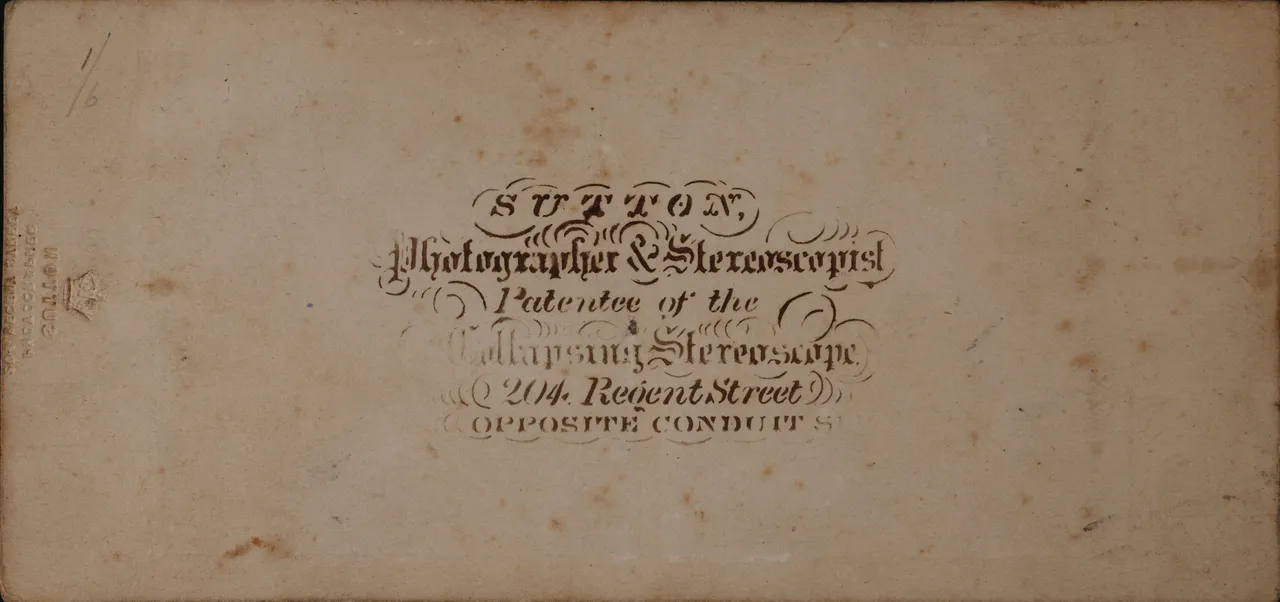 1/6
SUTTON,
Photographer & Stereoscopist
Patentee of the
Collapsing Stereoscope.
204. Regent Street
OPPOSITE CONDUIT S
SUTTON